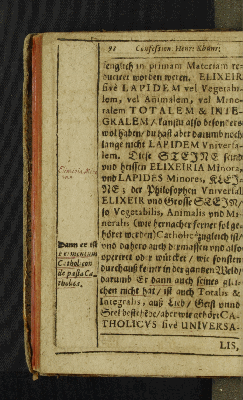 98 Confession Henr: Khunr:
lenglich in primam Materiam re-
duciret worden weren. ELIXEIR
sivè LAPIDEM vel Vegetabi-
lem, vel Animalem, vel Mine-
ralem TOTALEM & INTE-
GRALEM / kanstu also besonders
wol haben / du hast aber darumb noch
lange nicht LAPIDEM Vniversa-
lem. Diese STEINE seind
vnd heissen ELIXEIRIA Minora,
vnd LAPIDES Minores, KLEI-
NE; der Philosophen Vniversal
ELIXEIR vnd Grosse STEIN /
so Vegetabilis, Animalis vnd Mi-
neralis (wie hernacher ferner sol ge-
höret werden) Catholicè zugleich ist /
vnd dahero auch dermassen vnd also
operiret oder würcket / wie sonsten
durchauß keiner in der gantzen Welt /
darumb Er dann auch seines glei-
chen nicht hat / ist auch Totalis &
Integralis, auß Lieb / Geist vnnd
Seel bestehende / aber wie gehört CA-
THOLICVS sivè UNIVERSA-
LIS,
Elixeiria Mi-
nora
Dann er ist
Elementum
Catholicon
de postà Ca-
tholicis.